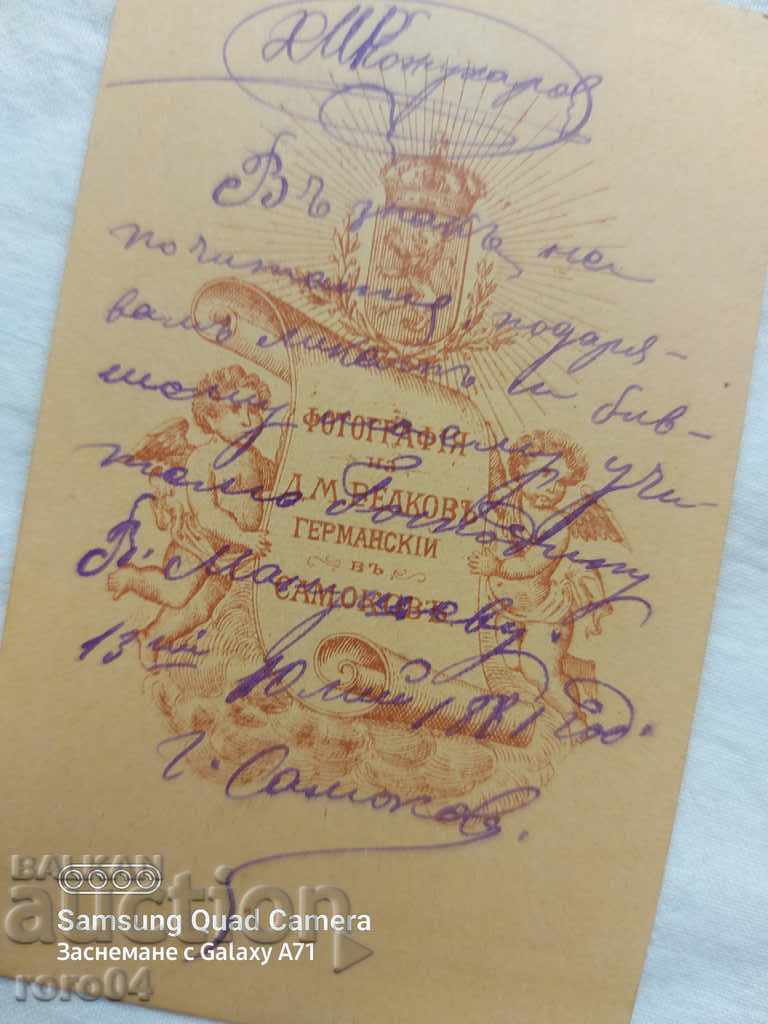 ХМКожухаров
Въ знакъ на
почитание, подаря-
вамъ ликътъ си бив-
шему моему учи-
телю Господину
В. Манчеву.
13ий Юлий 1881 год.
г. Самоковъ.
ФОТОГРАФІЯ
на
Д. М. ВЕЛКОВЪ
ГЕРМАНСКІЙ
въ
САМОКОВЪ
BALKAN
auction
roro04
Samsung Quad Camera
Заснемане с Galaxy A71